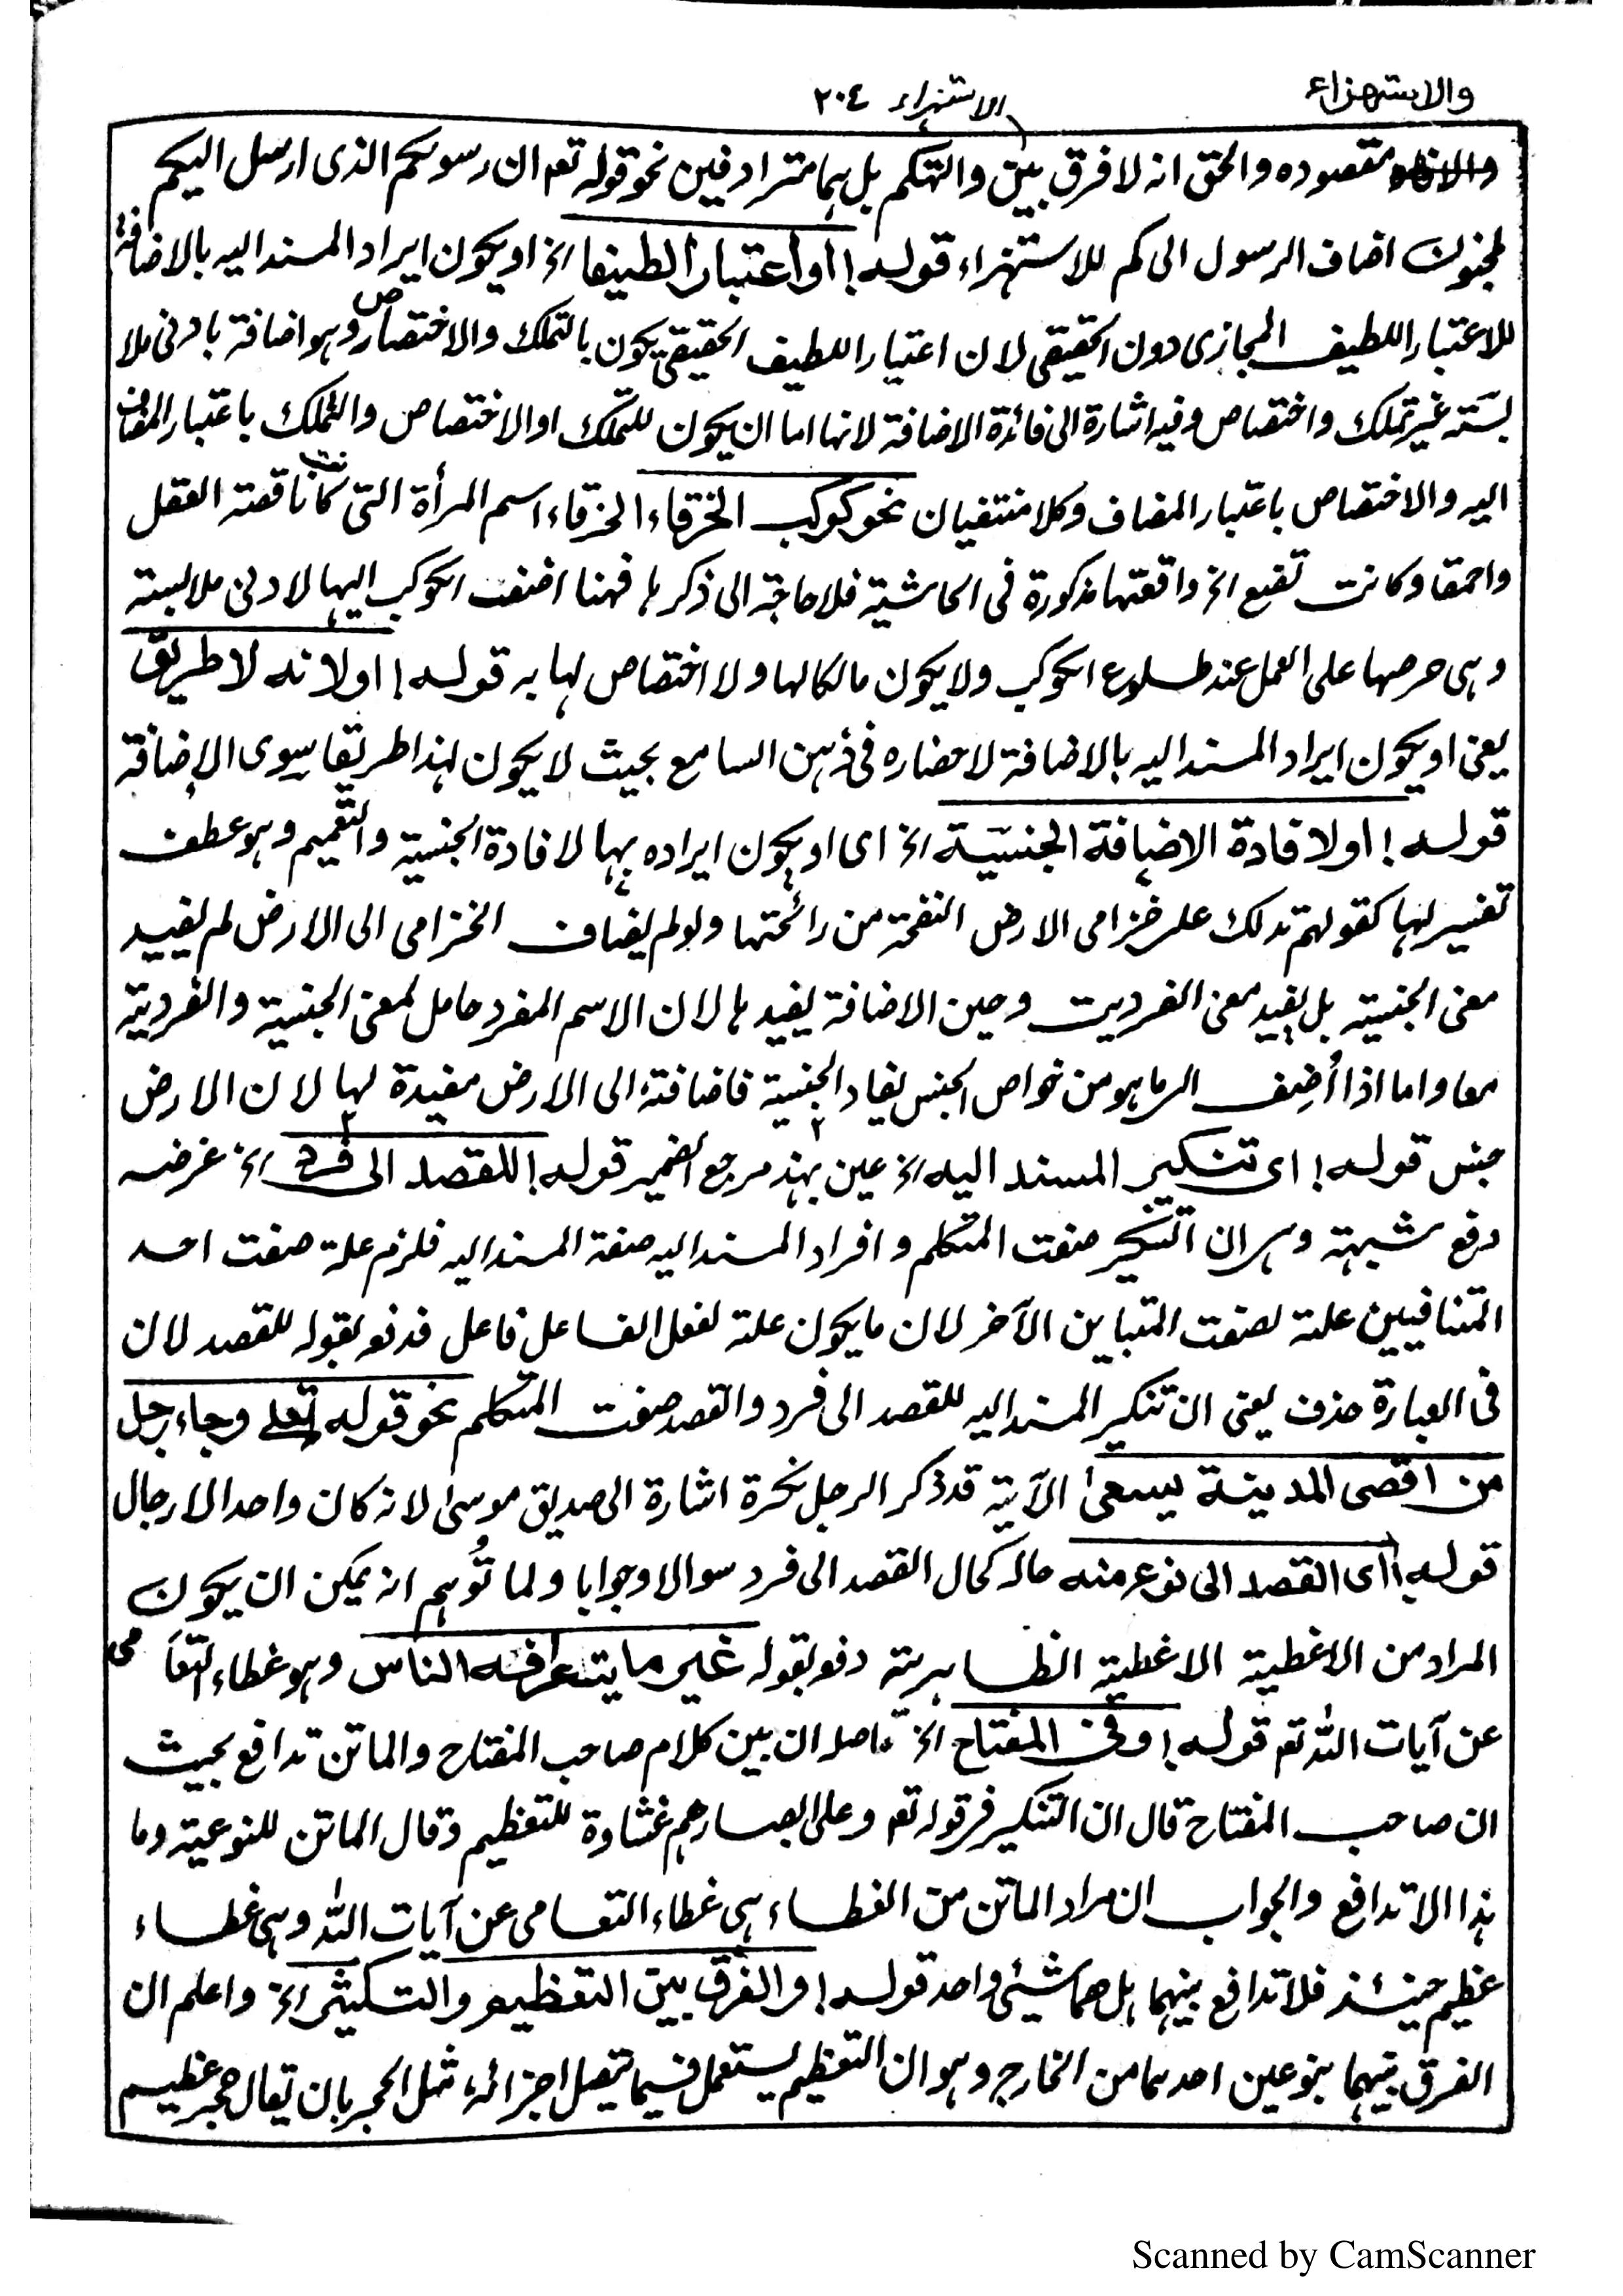 والاستهزاء
الاستهزاء ٢٠٤
مقصوده والحق انه لا فرق بين والتهكم بل هما مترادفين نحو قوله تع ان رسولكم الذى ارسل اليكم
لمجنون اضاف الرسول الى كم للاستهزاء قوله! او اعتبارا لطيفا الخ او يكون ايراد المسند اليه بالاضافة
للاعتبار اللطيف المجازى دون الحقيقى لان اعتبار اللطيف الحقيقى يكون بالتملك والاختصاص وهو اضافة بادنى ملا
بسة غير تملك واختصاص وفيه اشارة الى فائدة الاضافة لانها اما ان يكون للتملك او الاختصاص والتملك باعتبار المضاف
اليه والاختصاص باعتبار المضاف وكلا منتفيان نحو كوكب الخرقاء الخرقاء اسم المرأة التى كانت ناقصة العقل
واحمقا وكانت تضيع الخ واقعتها مذكورة فى الحاشية فلا حاجة الى ذكرها فهنا اضفت الكوكب اليها لادنى ملابسة
وهى حرصها على العمل عند طلوع الكوكب ولا يكون مالكا لها ولا اختصاص لها به قوله! او لانه لا طريق
يعنى او يكون ايراد المسند اليه بالاضافة لاحضاره فى ذهن السامع بحيث لا يكون لهذا طريقا سوى الاضافة
قوله! او لافادة الاضافة الجنسية الخ اى او يكون ايراده بها لافادة الجنسية والتعميم وهو عطف
تفسير لها كقولهم تدلك على خزامى الارض النفحة من رائحتها ولو لم يضاف الخزامى الى الارض لم يفيد
معنى الجنسية بل يفيد معنى الفرديت وحين الاضافة يفيدها لان الاسم المفرد حامل لمعنى الجنسية والفردية
معا واما اذا أضيف الى ما هو من خواص الجنس يفاد الجنسية فاضافته الى الارض مفيدة لها لان الارض
جنس قوله! اى تنكير المسند اليه الخ عين بهذ مرجع الضمير قوله! للقصد الى فرد الخ غرضه
دفع شبهة وهى ان التنكير صفت المتكلم وافراد المسند اليه صفة المسند اليه فلزم علة صفت احد
المتنافيين علة لصفت المتباين الآخر لان ما يكون علة لفعل الفاعل فاعل فدفع بقوله للقصد لان
فى العبارة حذف يعنى ان تنكير المسند اليه للقصد الى فرد والقصد صفت المتكلم نحو قوله تعلى وجاء رجل
من اقصى المدينة يسعى الآية قد ذكر الرجل نكرة اشارة الى صديق موسى لانه كان واحدا لا رجال
قوله! اى القصد الى نوع منه حاله كحال القصد الى فرد سوالا وجوابا ولما تُوهم انه يمكن ان يكون
المراد من الاغطية الاغطية الظاهرية دفع بقوله غير ما يتعرافه الناس وهو غطاء التعامى
عن آيات الله تع قوله! وفى المفتاح الخ حاصله ان بين كلام صاحب المفتاح والماتن تدافع بحيث
ان صاحب المفتاح قال ان التنكير فى قوله تع وعلى ابصارهم غشاوة للتعظيم وقال الماتن للنوعية وما
هذا الا تدافع والجواب ان مراد الماتن من الغطاء هى غطاء التعامى عن آيات الله وهى غطاء
عظيم حينئذ فلا تدافع بينهما بل هما شيئى واحد قوله! والفرق بين التعظيم والتكثير الخ واعلم ان
الفرق بينهما بنوعين احدهما من الخارج وهو ان التعظيم يستعمل فيما يتصل اجزائه مثل الحجر بان يقال حجر عظيم
Scanned by CamScanner